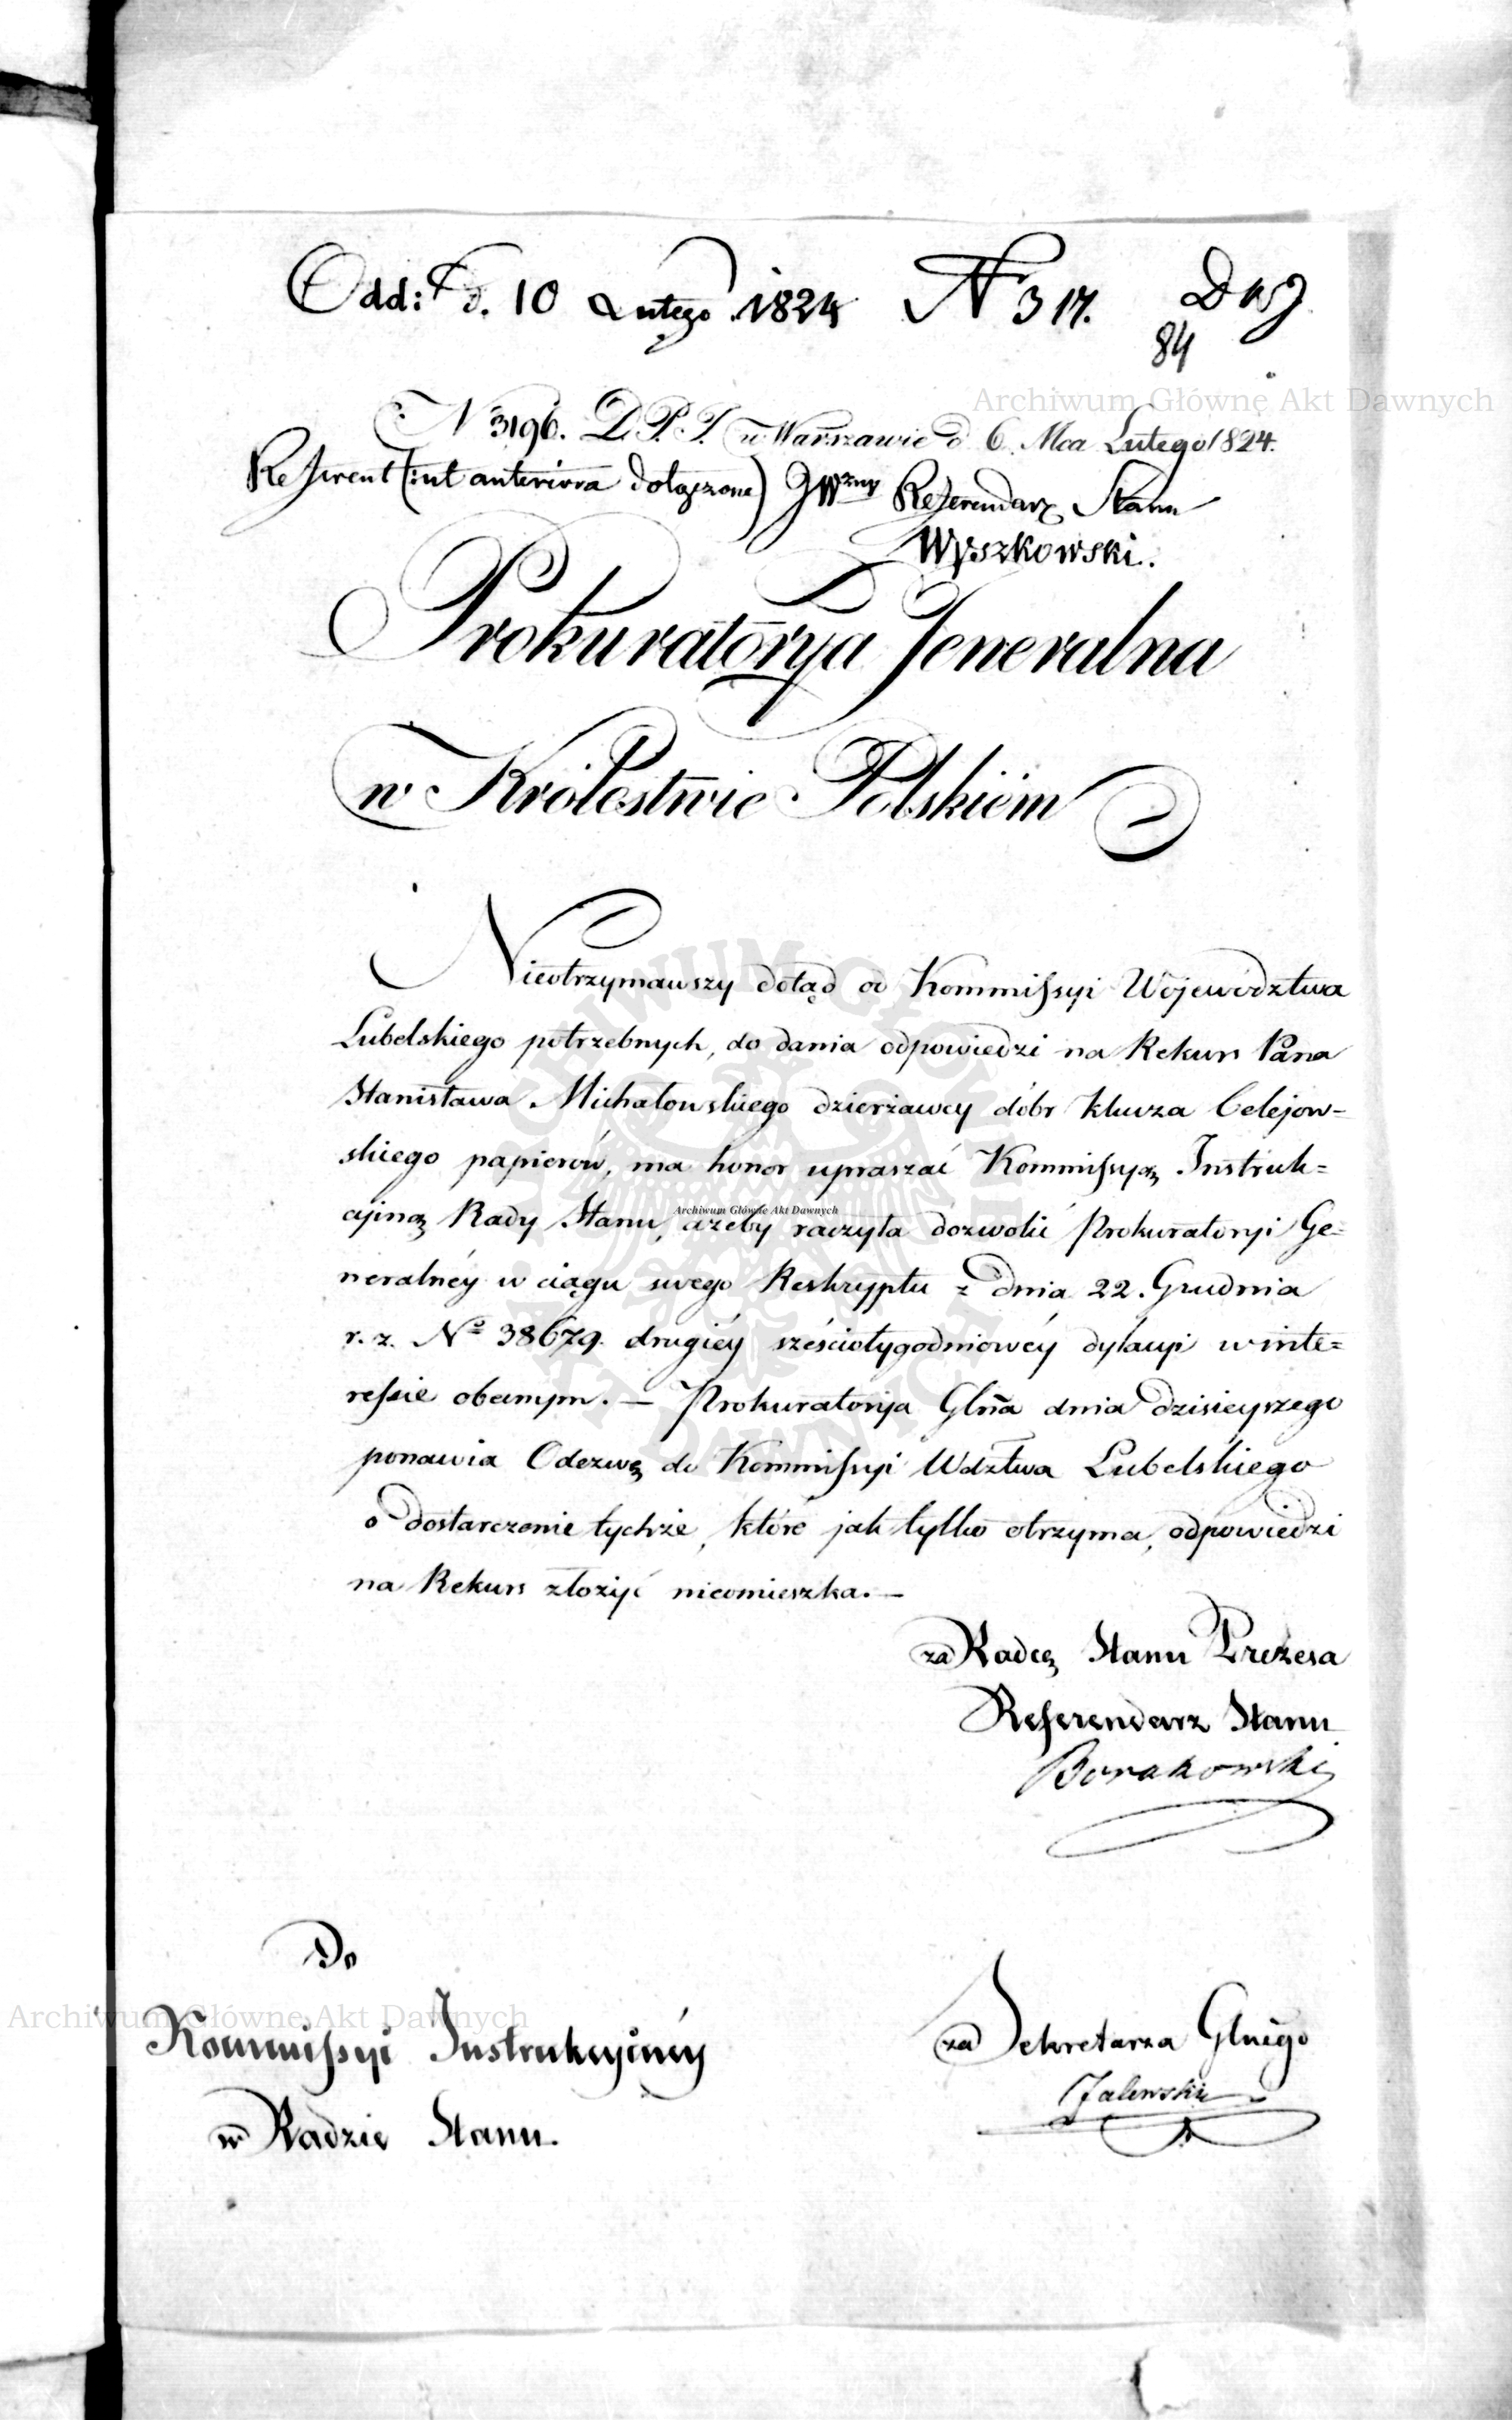 Odd: d. 10 Lutego 1824 N 317.
84
Archiwum Główne Akt Dawnych
N 3196. D.P.I. w Warszawie d 6. Mca Lutego 1824.
Referent (:ut anteriora dołączone) JWzny Referendarz Stanu
Wyszkowski.
Prokuratorya Jeneralna
w Królestwie Polskiém
Nieotrzymawszy dotąd od Kommissyi Województwa
Lubelskiego potrzebnych, do dania odpowiedzi na Rekurs Pana
Stanisława Michałowskiego dzierżawcy dóbr klucza Celejow=
skiego papierów, ma honor upraszać Kommissyą Instruk=
cyjną Rady Stanu, ażeby raczyła dozwolić Prokuratoryi Ge=
Archiwum Główne Akt Dawnych
neralnéy w ciągu swego Reskryptu z dnia 22. Grudnia
r. z. No 38679. drugiéy sześciotygodniowéy dylacyi w inte=
ressie obecnym. — Prokuratorya Glña dnia dzisieyszego
ponawia Odezwę do Kommissyi Wdztwa Lubelskiego
o dostarczenie tychże, które jak tylko otrzyma, odpowiedzi
na Rekurs złożyć nieomieszka. —
za Radcę Stanu Prezesa
Referendarz Stanu
Borakowski
Do
Archiwum Główne Akt Dawnych
Kommissyi Instrukcyinéy
w Radzie Stanu.
za Sekretarza Glnego
Zalewski